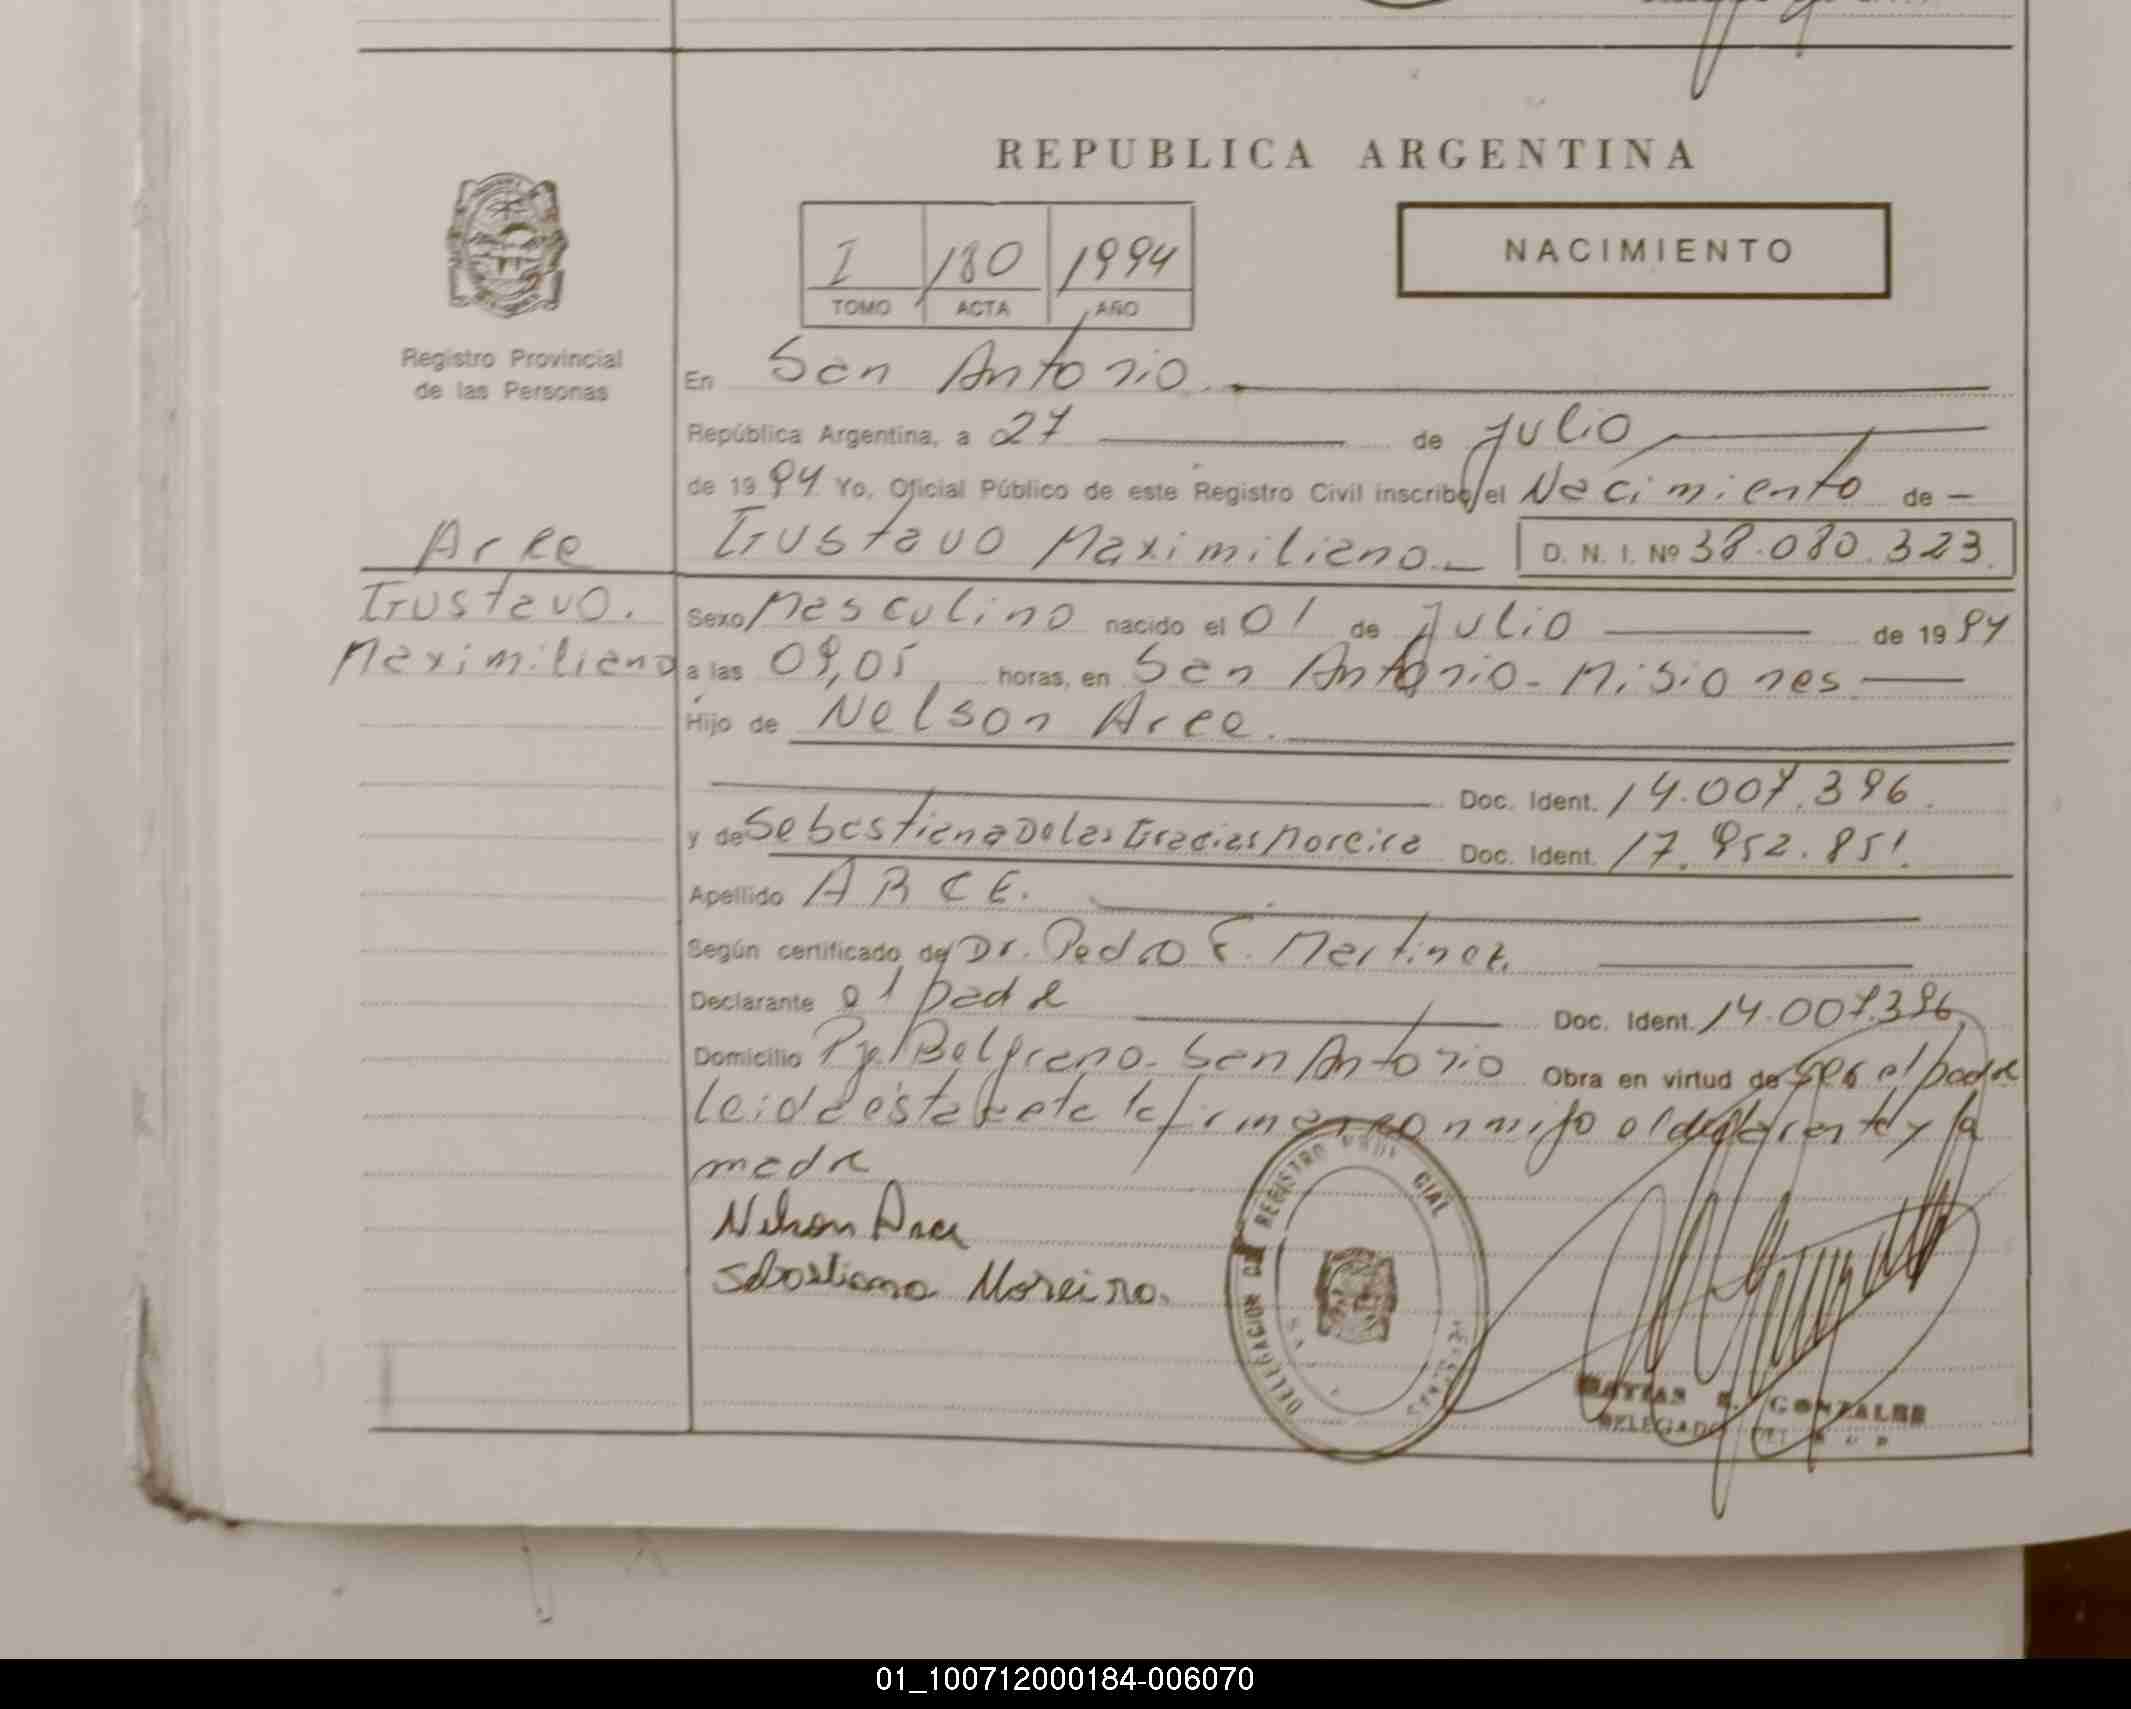 REPUBLICA ARGENTINA
NACIMIENTO
I 180 1994
TOMO ACTA AÑO
Registro Provincial
de las Personas
En San Antonio.
República Argentina, a 27 de Julio
de 1994 Yo, Oficial Público de este Registro Civil inscribo el Nacimiento de -
Arce
Gustavo Maximiliano.- D. N. I. Nº 38.080.323.
Gustavo.
Maximiliano
Sexo Masculino nacido el 01 de Julio de 1994
a las 09,05 horas, en San Antonio - Misiones
Hijo de Nelson Arce.
Doc. Ident. 14.007.396.
y de Sebastiana De las Gracias Moreira Doc. Ident. 17.952.851.
Apellido ARCE.
Según certificado de Dr. Pedro F. Martinez
Declarante el padre Doc. Ident. 14.007.396
Domicilio Pje Belgrano - San Antonio Obra en virtud de ser el padre
leida esta acta la firman conmigo el declarante y la
madre
Nelson Arce
Sebastiana Moreira.
DELEGACION REGISTRO
MATIAS E. GONZALEZ
DELEGADO DEL
01_100712000184-006070